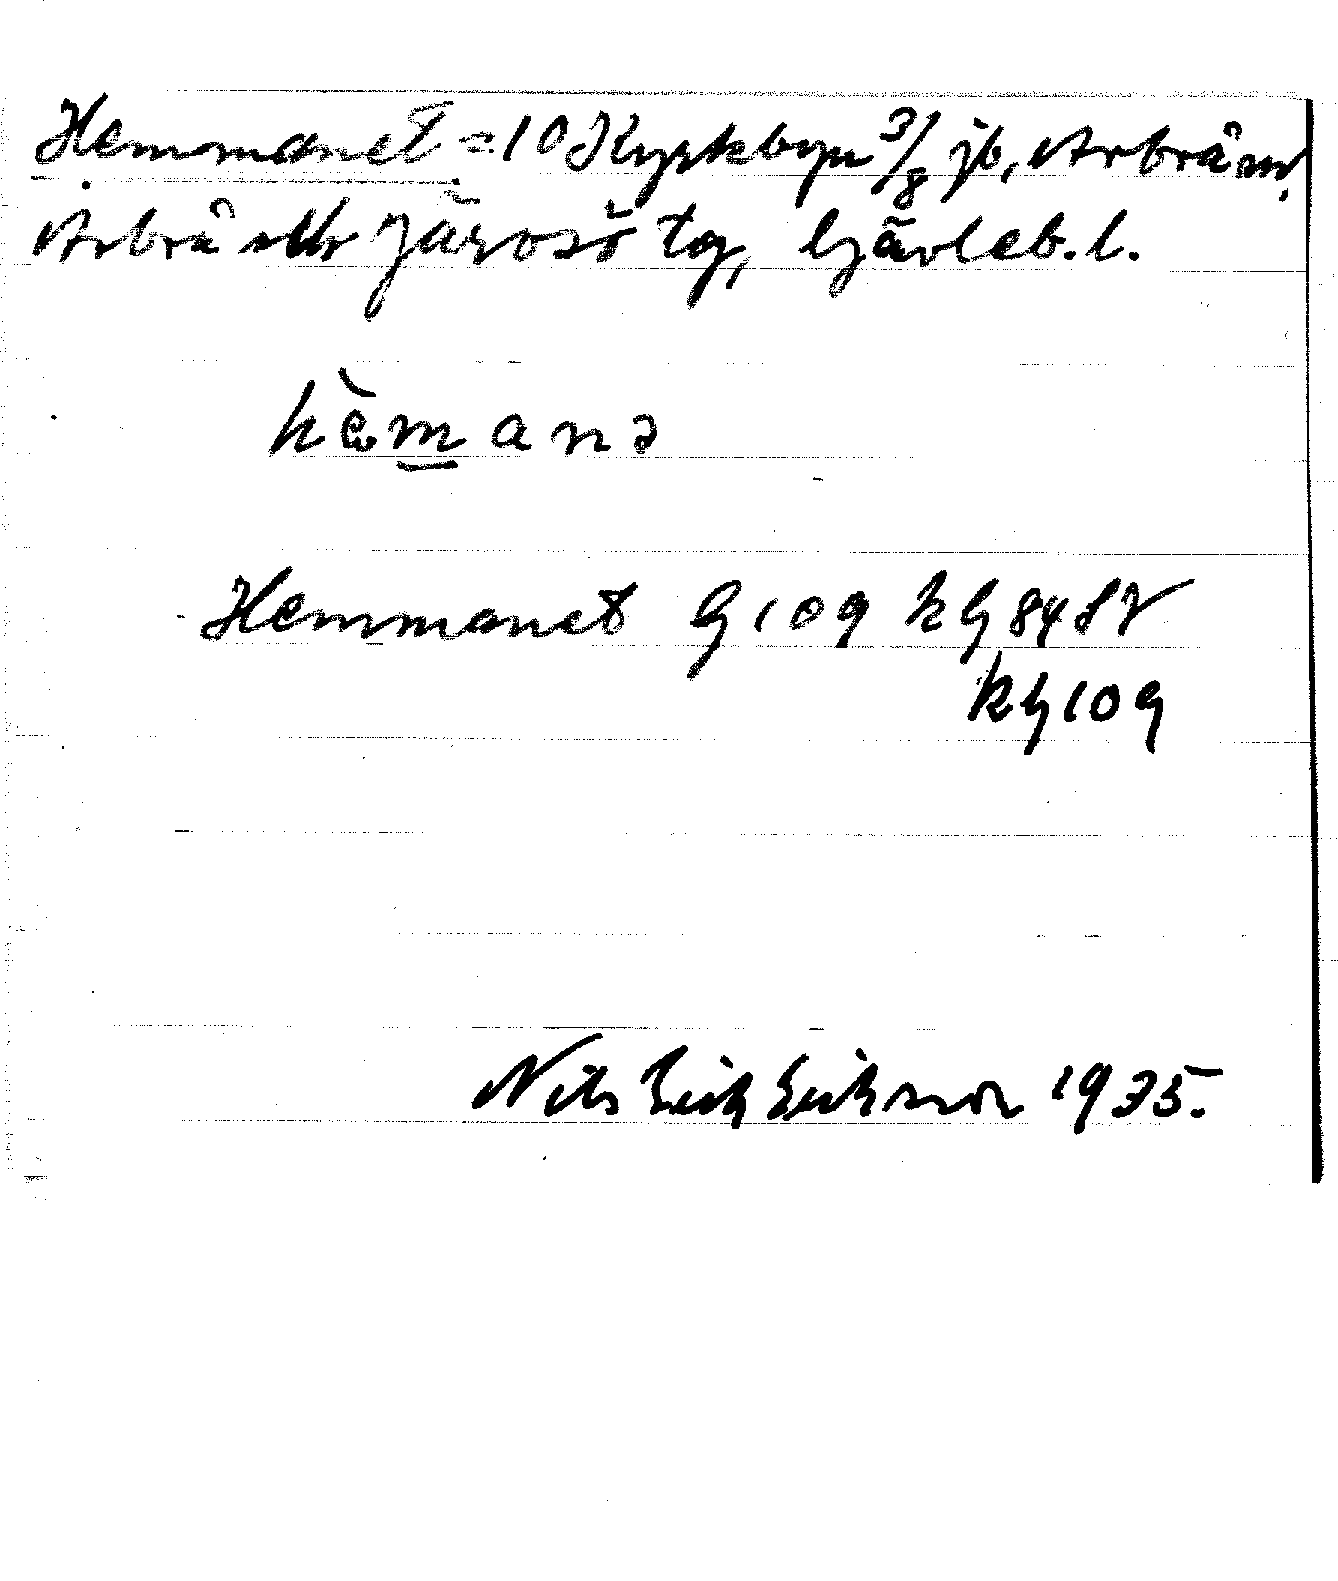 Hemmanet = 10 Kyrkbyn 3/8 jb, Arbrå sn,
Arbrå o Järvsö tg, Gävleb. l.
hèmanə
Hemmanet G 109 kG 84 SV
kG 109
Nils Erik Eriksson 1935.